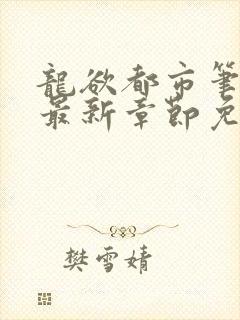 龍欲都市筆
最新章節免
樊雪婧